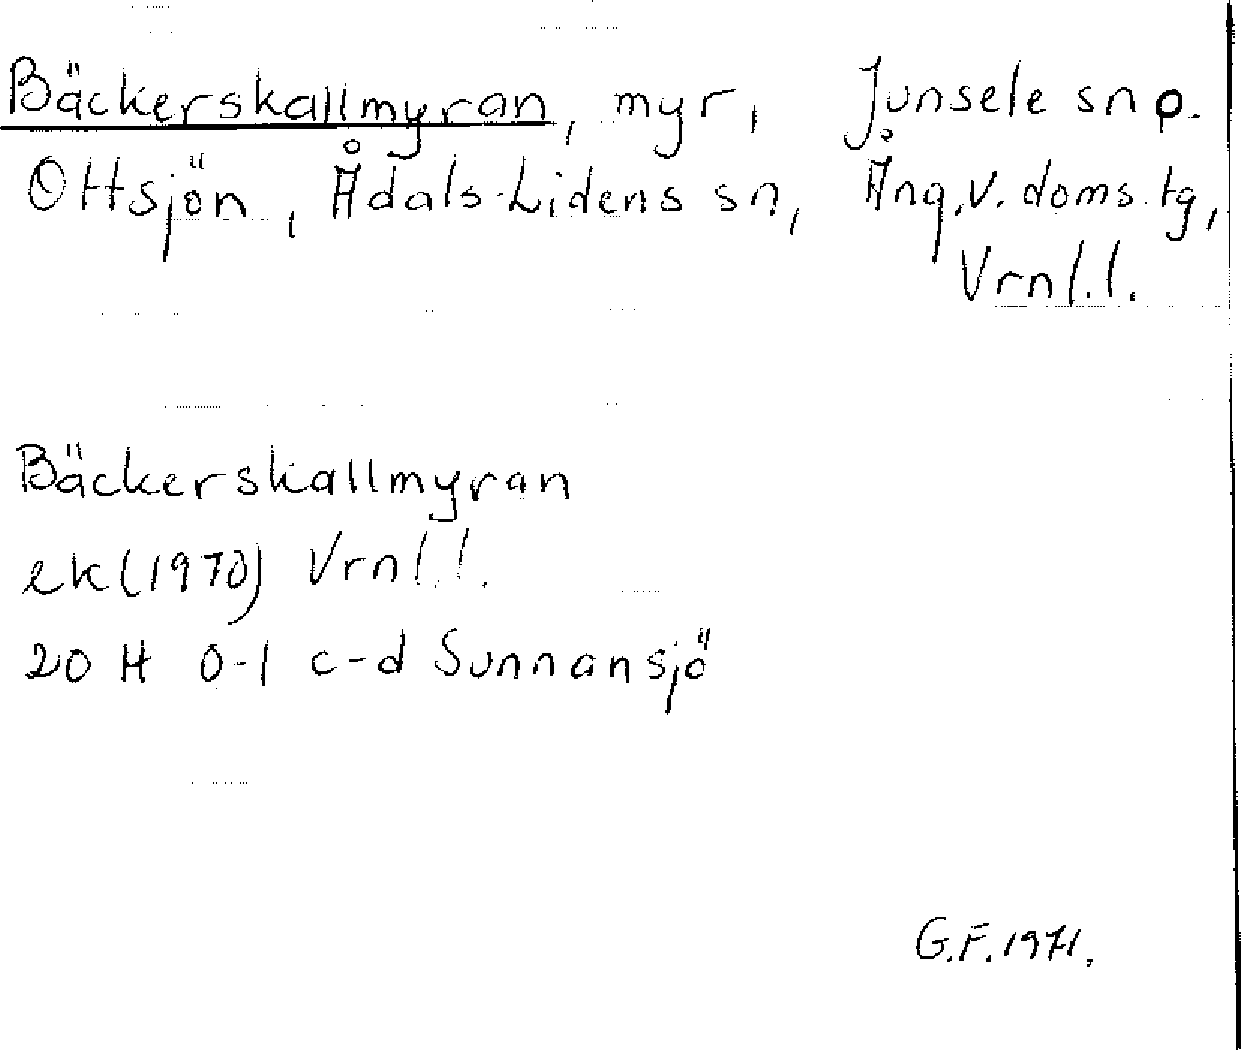 Bäckerskallmyran, myr, Junsele sn o.
Ottsjön, Ådals-Lidens sn, Ång.v.doms.tg,
Vrnl.l.
Bäckerskallmyran
ek(1970) Vrnl.l.
20 H 0-1 c-d Sunnansjö
G.F.1971.